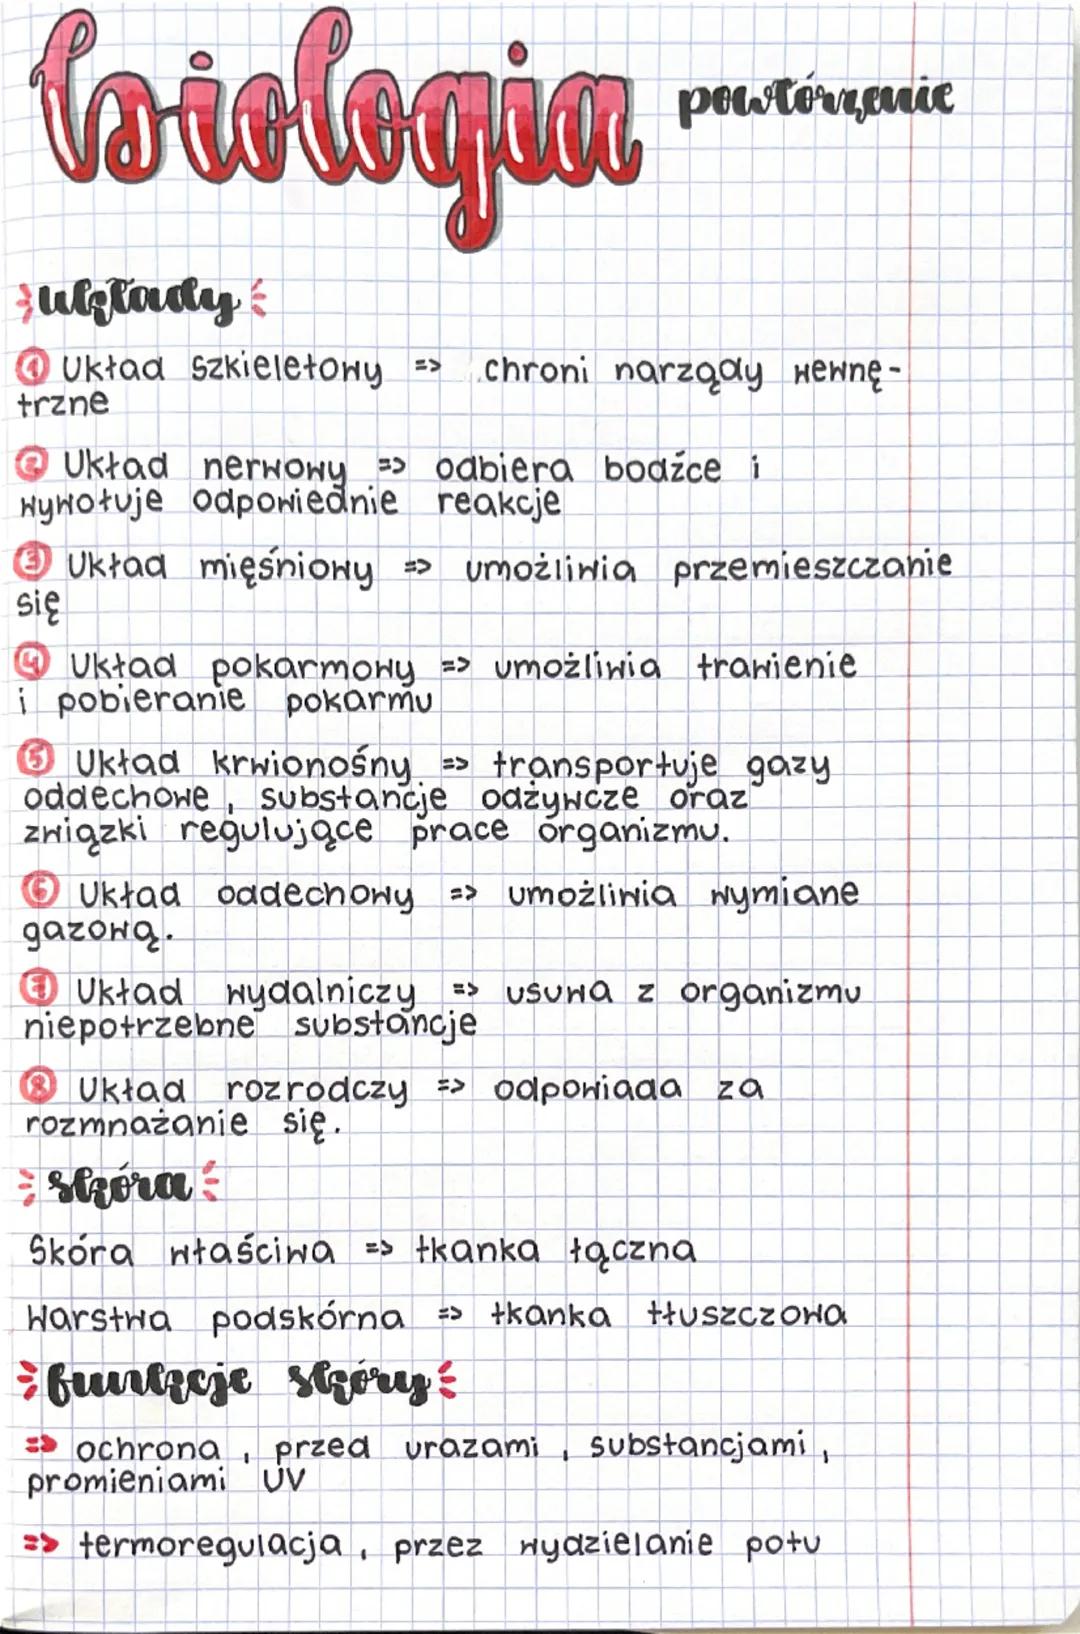 biologia powtórzenie
układy
① Układ szkieletowy => chroni narządy wewnę-
trzne
② Układ nerwowy => odbiera bodźce i
wywołuje odpowiednie reakcje
③ Układ mięśniowy => umożliwia przemieszczanie
się
④ Układ pokarmowy => umożliwia trawienie
i pobieranie pokarmu
⑤ Układ krwionośny => transportuje gazy
oddechowe, substancje odżywcze oraz
związki regulujące prace organizmu.
⑥ Układ oddechowy => umożliwia wymiane
gazową.
⑦ Układ wydalniczy => usuwa z organizmu
niepotrzebne substancje
⑧ Układ rozrodczy => odpowiada za
rozmnażanie się.
skóra
Skóra właściwa => tkanka łączna
Warstwa podskórna => tkanka tłuszczowa
funkcje skóry
=> ochrona, przed urazami, substancjami,
promieniami UV
=> termoregulacja, przez wydzielanie potu